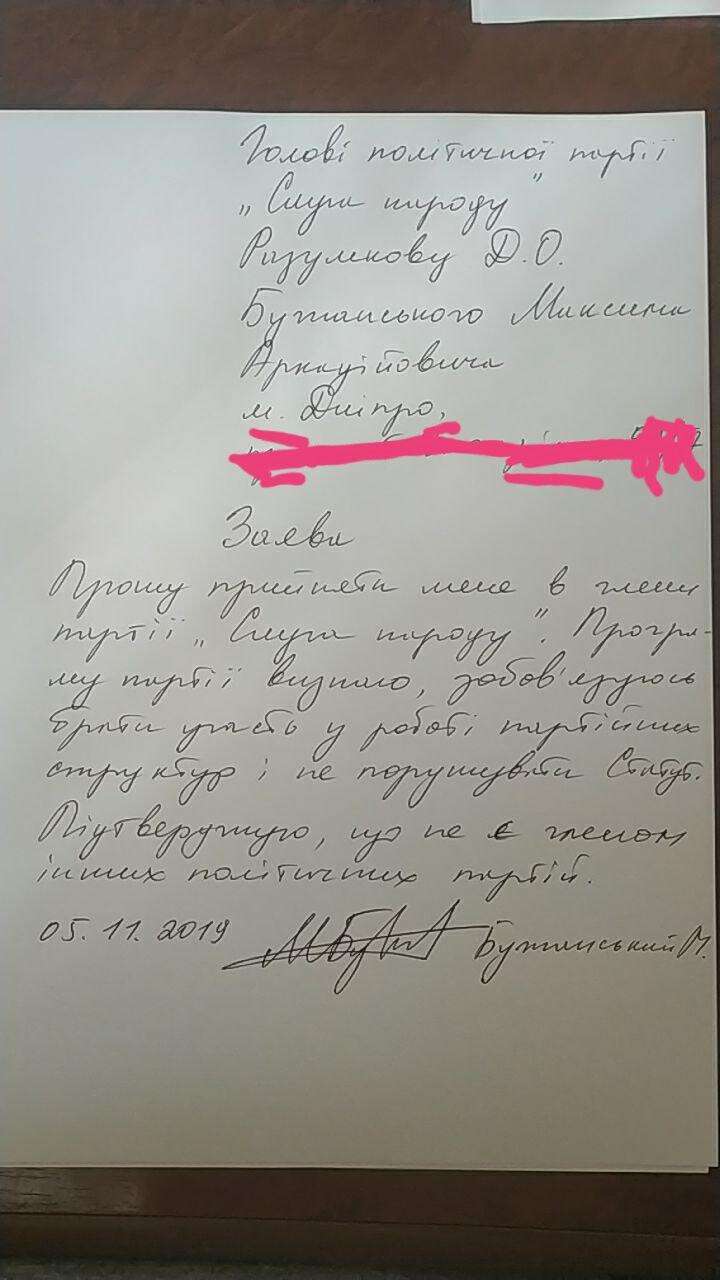 Голові політичної партії
„Слуга народу"
Разумкову Д.О.
Бужанського Максима
Аркадійовича
м. Дніпро,
Заява
Прошу прийняти мене в члени
партії „Слуга народу". Програ-
му партії визнаю, зобов'язуюсь
брати участь у роботі партійних
структур і не порушувати Статут.
Підтверджую, що не є членом
інших політичних партій.
05.11.2019 Бужанський М.